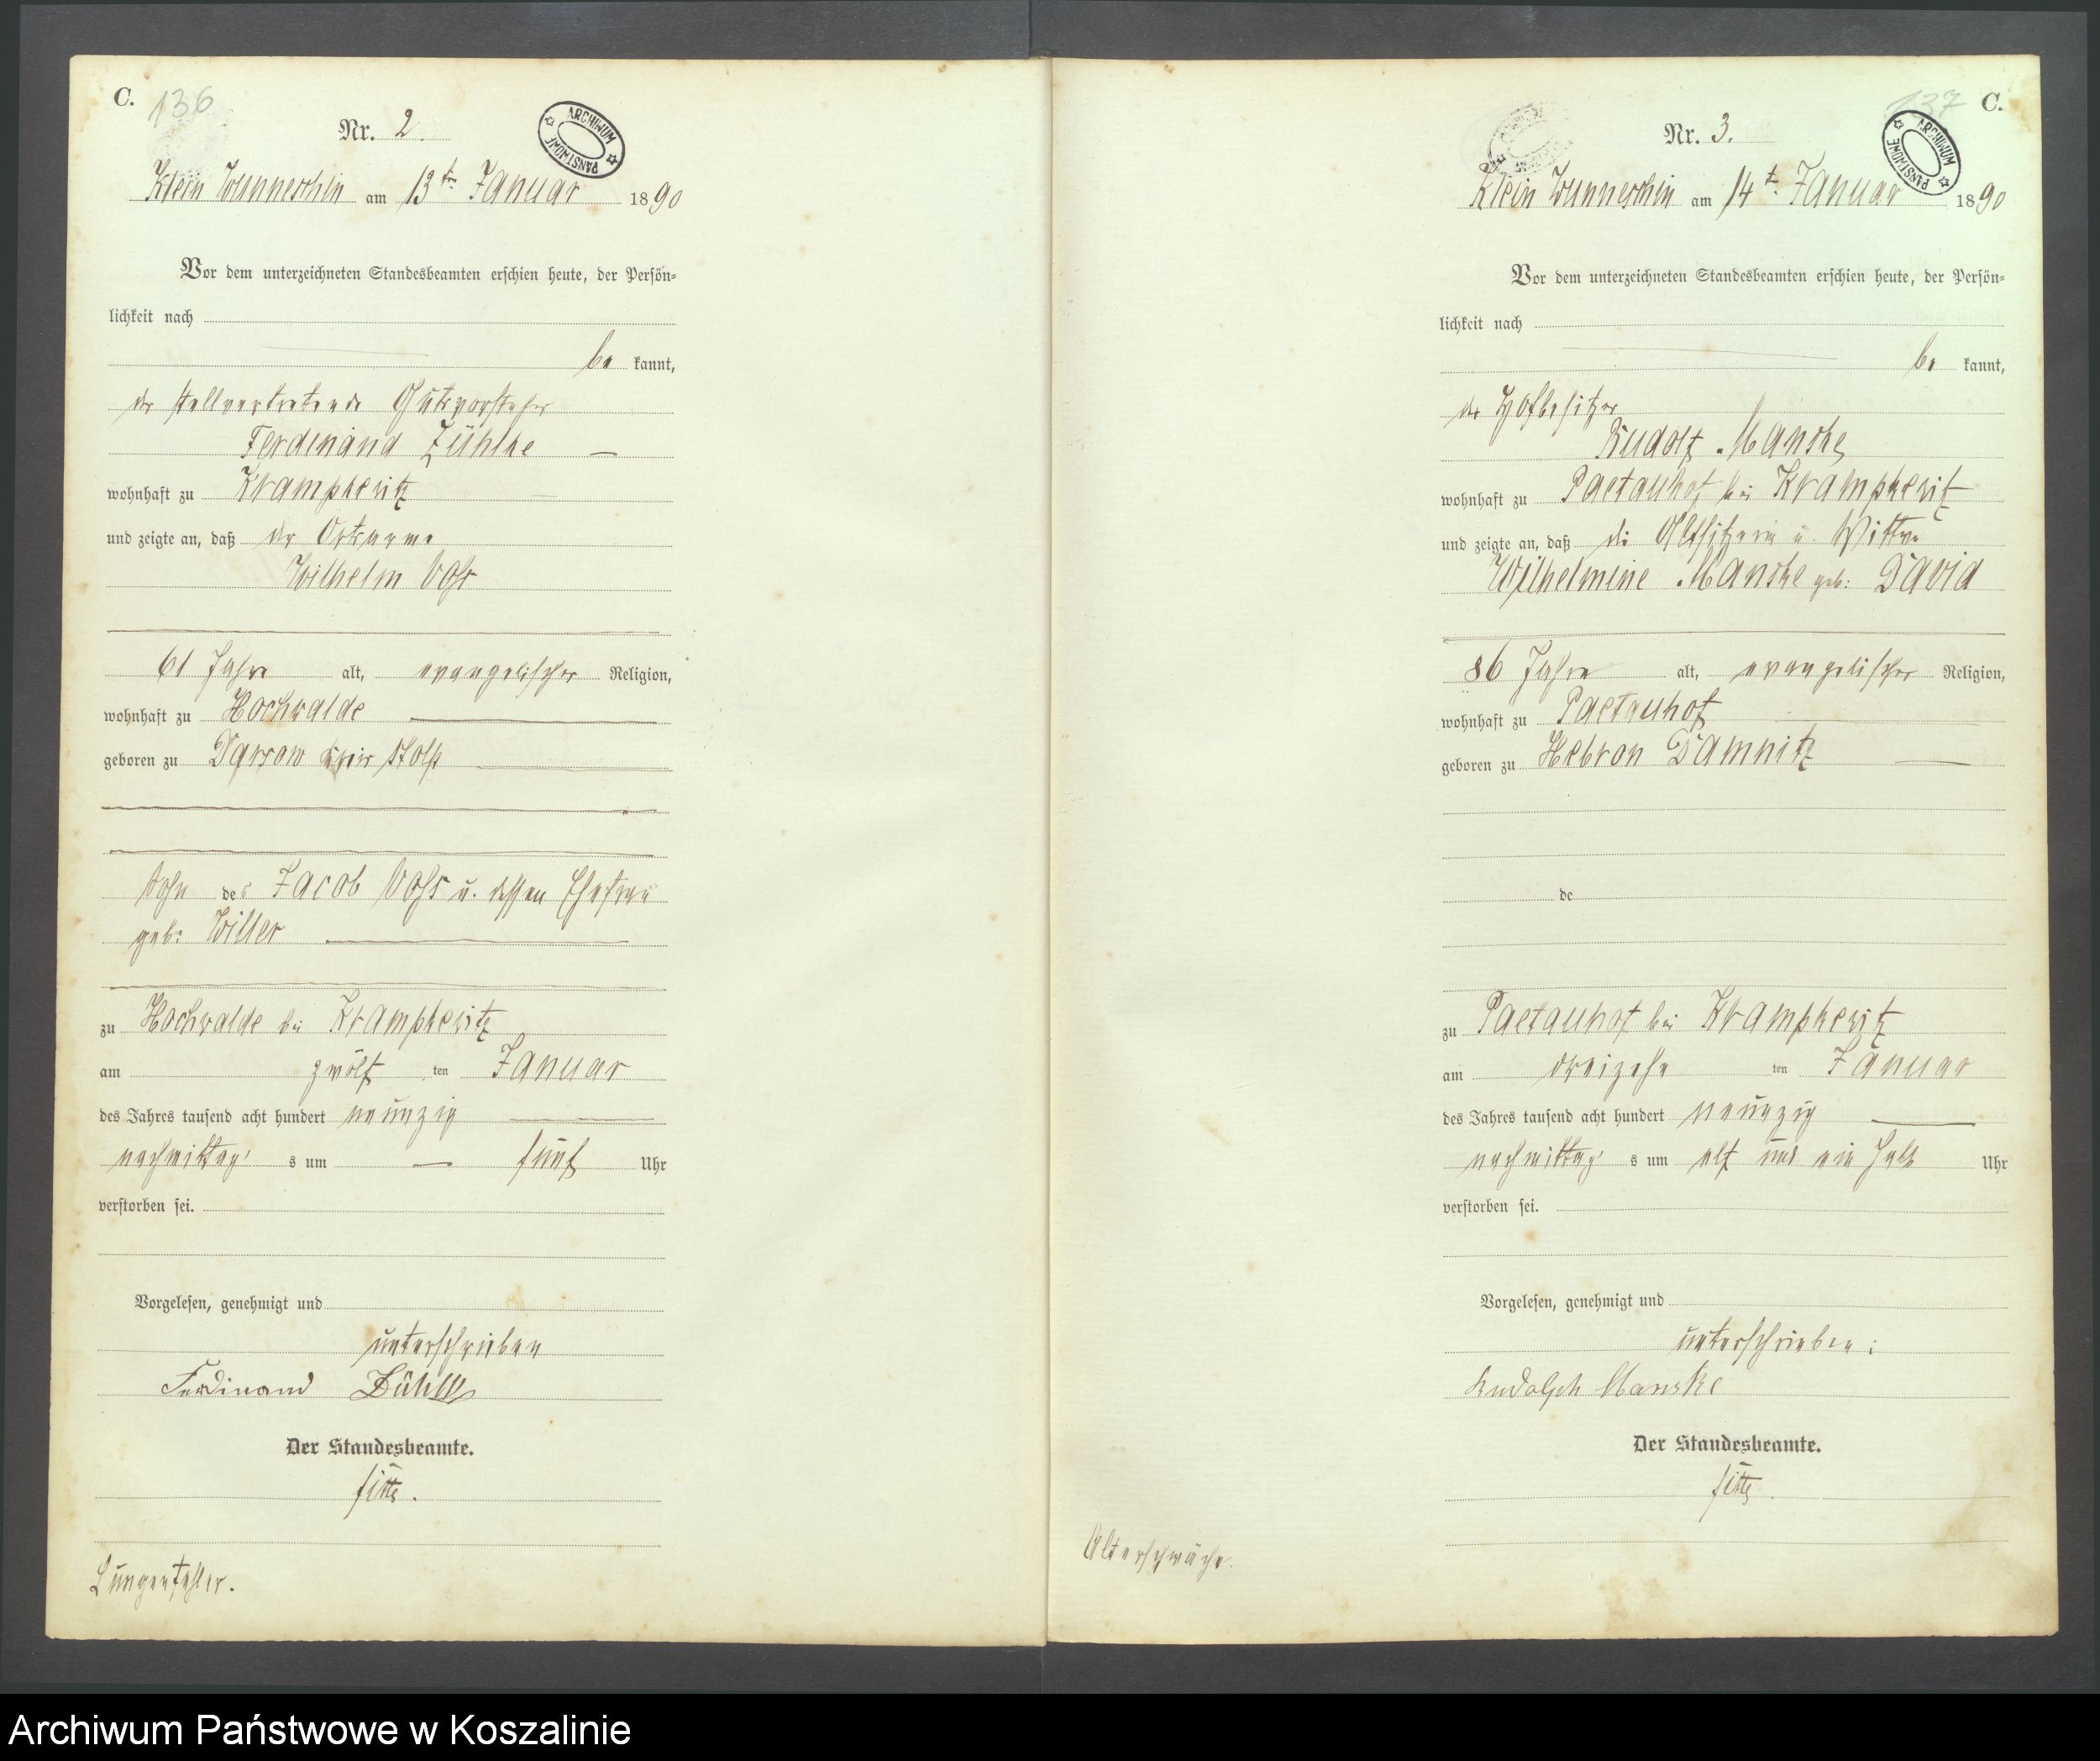 C.
136
Nr. 2.
ARCHIWUM PAŃSTWOWE
Klein Wunneschin am 13ten Januar 1890
Vor dem unterzeichneten Standesbeamten erschien heute, der Persön=
lichkeit nach
be kannt,
der stellvertretende Gutsvorsteher
Ferdinand Zühlke
wohnhaft zu Krampkewitz
und zeigte an, daß der Ortsarme
Wilhelm Voß
61 Jahre alt, evangelischer Religion,
wohnhaft zu Hochwalde
geboren zu Darsow Kreis Stolp
Sohn des Jacob Voß u. dessen Ehefrau
geb: Willer
zu Hochwalde bei Krampkewitz
am zwölf ten Januar
des Jahres tausend acht hundert neunzig
nachmittag s um fünf Uhr
verstorben sei.
Vorgelesen, genehmigt und
unterschrieben
Ferdinand Zühlke
Der Standesbeamte.
Lungenfehler.
137
C.
Nr. 3.
ARCHIWUM PAŃSTWOWE
Klein Wunneschin am 14t. Januar 1890
Vor dem unterzeichneten Standesbeamten erschien heute, der Persön=
lichkeit nach
be kannt,
der Hofbesitzer
Rudolf Manske
wohnhaft zu Paetauhof bei Krampkewitz
und zeigte an, daß die Altsitzerin u. Wittwe
Wilhelmine Manske geb: David
86 Jahre alt, evangelischer Religion,
wohnhaft zu Paetauhof
geboren zu Hebron Damnitz
de
zu Paetauhof bei Krampkewitz
am dreizehn ten Januar
des Jahres tausend acht hundert neunzig
nachmittag s um elf und ein halb Uhr
verstorben sei.
Vorgelesen, genehmigt und
unterschrieben:
Rudolph Manske
Der Standesbeamte.
Alterschwäche.
Archiwum Państwowe w Koszalinie